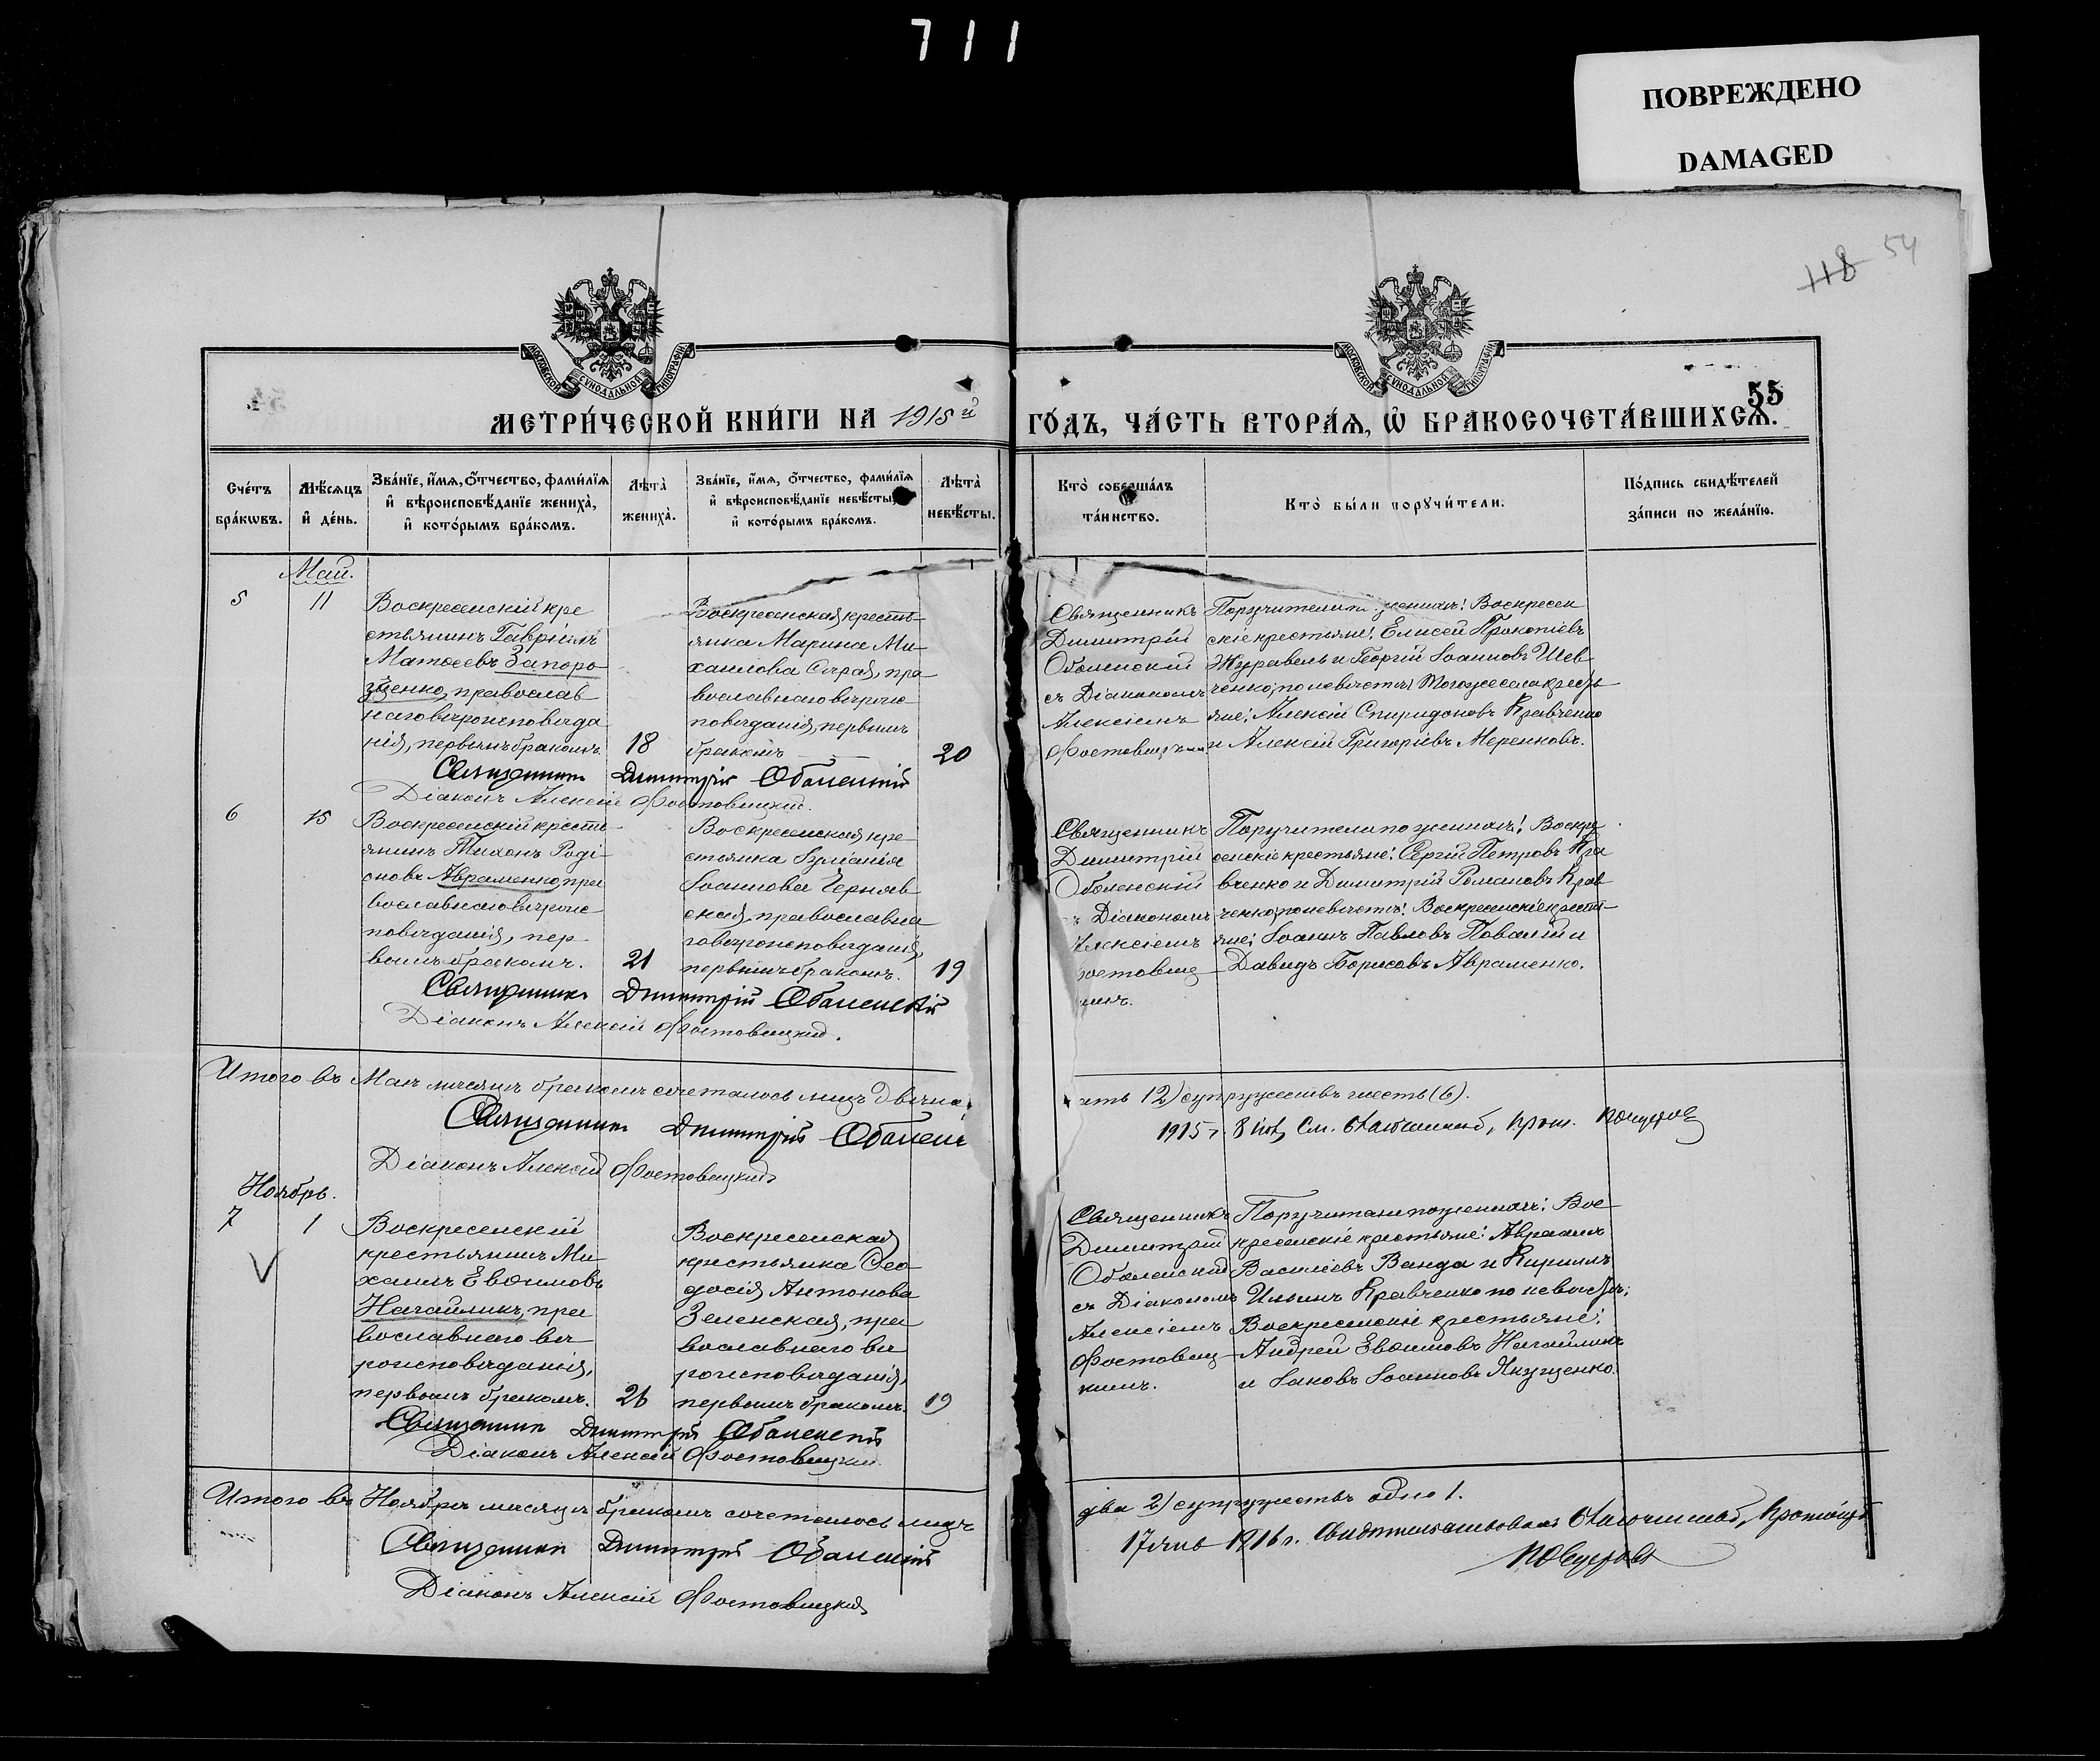 711
ПОВРЕЖДЕНО
DAMAGED
118 54
55
МОСКОВСКОЙ СУНОДАЛЬНОЙ ТИПОГРАФІИ
МОСКОВСКОЙ СУНОДАЛЬНОЙ ТИПОГРАФІИ
МЕТРИ́ЧЕСКОЙ КНИ́ГИ НА 1915й ГО́ДЪ, ЧА́СТЬ ВТОРА́Ѧ, Ѽ БРАКОСОЧЕТА́ВШИХСѦ.
Сче́тъ
бра́кѡвъ.
Мѣ́сѧцъ
и҆ де́нь.
Зва́нїе, и҆́мѧ, ѻ҆́тчество, фами́лїѧ
и҆ вѣроисповѣ́данїе жениха̀,
и҆ кото́рымъ бра́комъ.
Лѣ́та̀
жениха̀.
Зва́нїе, и҆́мѧ, ѻ҆́тчество, фами́лїѧ
и҆ вѣроисповѣ́данїе невѣ́сты,
и҆ кото́рымъ бра́комъ.
Лѣ́та̀
невѣ́сты.
Кто̀ соверша́лъ
та́инство.
Кто̀ бы́ли порꙋчи́тели.
По́дпись свидѣ́телей
за́писи по жела́нїю.
Май.
5
11
Воскресенскій кре
стьянинъ Гавріилъ
Матѳеевъ Запоро
женко, православ
наго вѣроисповѣда
нія, первымъ бракомъ.
18
Воскресенская кресть-
янка Марина Ми-
хаилова Сѣрая, пра
вославнаго вѣроис-
повѣданія, первымъ
бракомъ
20
Священникъ
Димитрій
Оболенскій
съ Діакономъ
Алексіемъ
Фостовецкимъ
Поручители по женихѣ: Воскресен
скіе крестьяне: Елисей Прокопіевъ
Журавель и Георгій Іоанновъ Шев
ченко; по невѣстѣ: того же села кресть
яне: Алексій Спиридоновъ Кравченко
и Алексій Григоріевъ Меренковъ.
Священникъ Димитрій Оболенскій
Діаконъ Алексій Фостовецкій.
6
15
Воскресенскій кресть-
янинъ Тихонъ Роді-
оновъ Авраменко, пра
вославнаго вѣроис-
повѣданія, пер-
вымъ бракомъ.
21
Воскресенская кре-
стьянка Іуліанія
Іоаннова Черняв-
ская, православна
го вѣроисповѣданія,
первымъ бракомъ.
19
Священникъ
Димитрій
Оболенскій
ъ Діакономъ
Алексіемъ
остовец-
имъ.
Поручители по женихѣ: Воскре
сенскіе крестьяне: Сергій Петровъ Кра
вченко и Димитрій Романовъ Крав
ченко; по невѣстѣ: Воскресенскіе кресть-
яне: Іоаннъ Павловъ Повалій и
Давидъ Борисовъ Авраменко.
Священникъ Димитрій Оболенскій
Діаконъ Алексій Фостовецкій.
Итого въ Маѣ мѣсяцѣ бракомъ сочеталось лицъ двѣна
цать 12) супружествъ шесть (6).
Священникъ Димитрій Оболен
1915 г. 8 См. Благочинный, прот.
Діаконъ Алексій Фостовецкій
Ноябрь.
7
1
V
Воскресенскій
крестьянинъ Ми-
хаилъ Евѳимовъ
Нагайникъ, пра
вославнаго вѣ
роисповѣданія,
первымъ бракомъ.
26
Воскресенская
крестьянка Ѳео-
досія Антонова
Зеленская, пра
вославнаго вѣ
роисповѣданія,
первымъ бракомъ.
19
Священникъ
Димитрій
Оболенскій
съ Діакономъ
Алексіемъ
Фостовец-
кимъ.
Поручители по женихѣ: Вос-
кресенскіе крестьяне: Авраамъ
Василіевъ Ванда и Кириллъ
Ильинъ Кравченко по невѣстѣ:
Воскресенскіе крестьяне:
Андрей Евѳимовъ Нагайникъ
и Іаковъ Іоанновъ Якущенко.
Священникъ Димитрій Оболенскій
Діаконъ Алексій Фостовецкій
Итого въ Ноябрѣ мѣсяцѣ бракомъ сочеталось лицъ
два 2) супружествъ одно 1.
Священникъ Димитрій Оболенскій
17 янв 1916 г. Свидѣтельствовалъ Благочинный, Протоіер
Діаконъ Алексій Фостовецкій